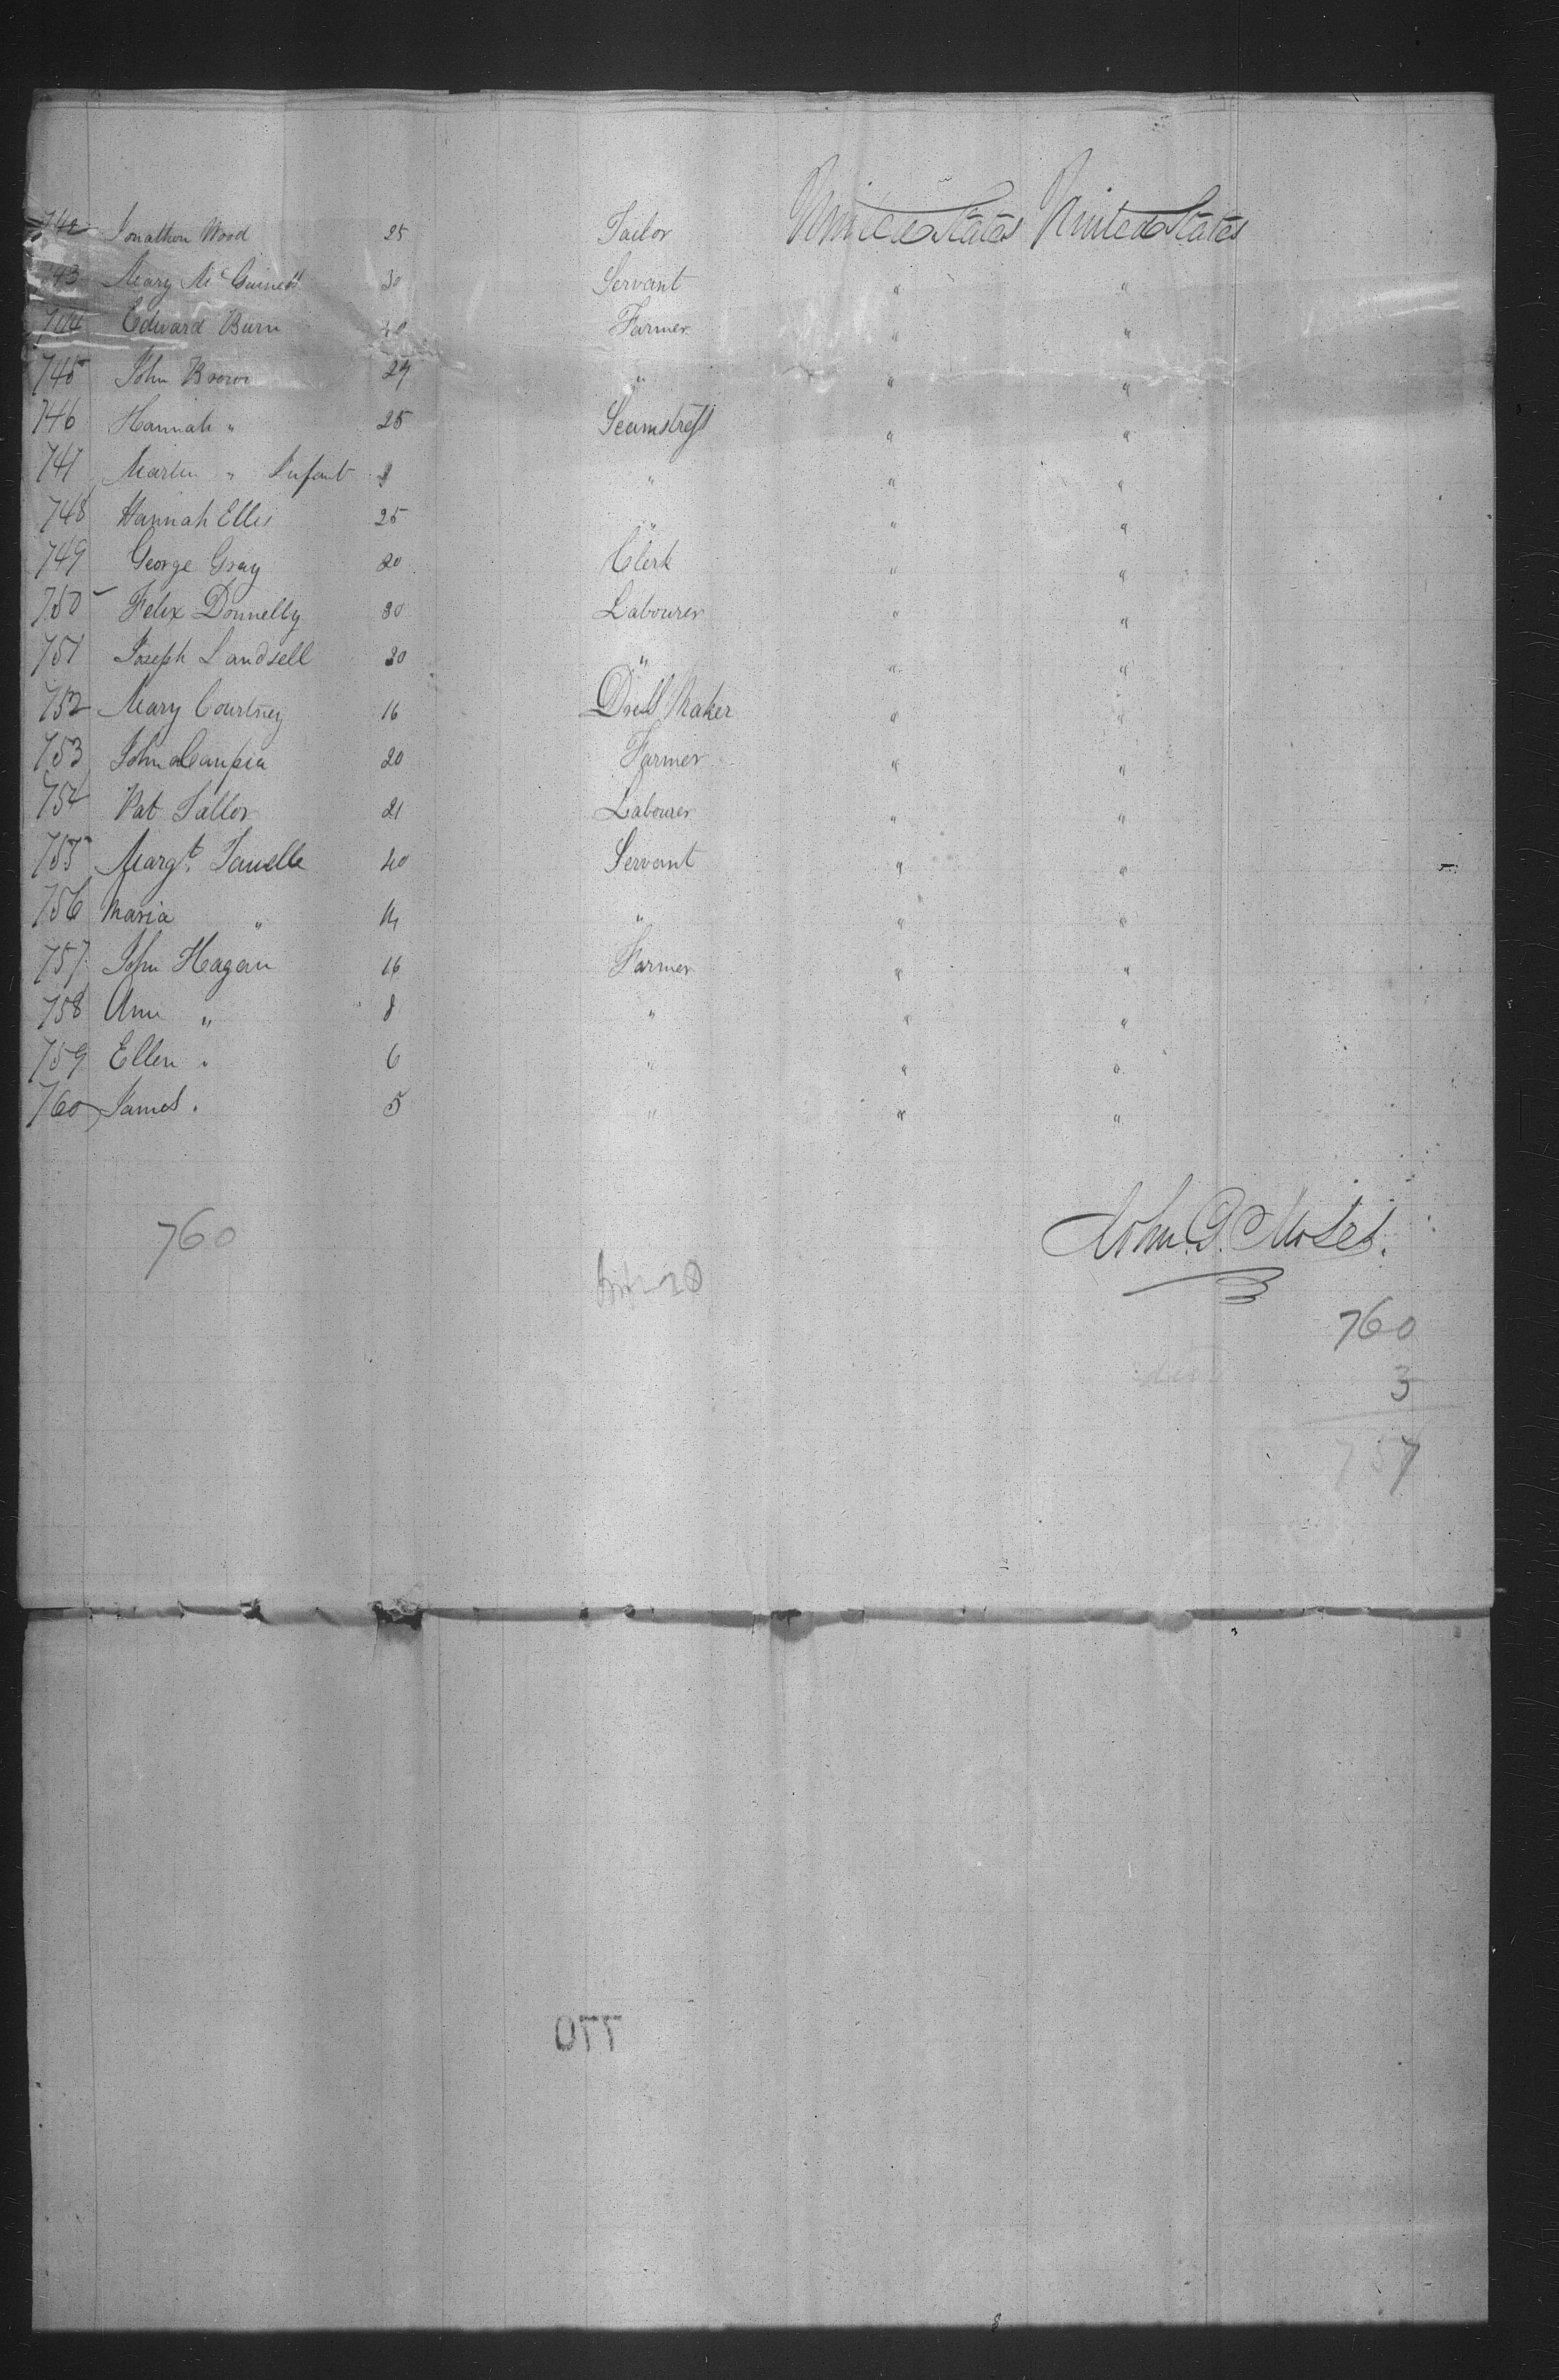 742 Jonathan Wood 25 Tailor United States United States
743 Mary Mc Guiness 30 Servant " "
744 Edward Burn 40 Farmer " "
745 John Brown 29 " " "
746 Hannah " 25 Seamstress " "
747 Martin " Infant " " "
748 Hannah Ellis 25 " " "
749 George Gray 20 Clerk " "
750 Felix Donnelly 30 Labourer " "
751 Joseph Landsell 30 " " "
752 Mary Courtney 16 Dress Maker " "
753 John 20 Farmer " "
754 Pat 21 Labourer " "
755 Margt. 40 Servant " "
756 Maria " 14 " " "
757 John Hagan 16 Farmer " "
758 Ann " 8 " " "
759 Ellen " 6 " " "
760 James " 5 " " "
John. G. Moses.
760
760
3
757
770